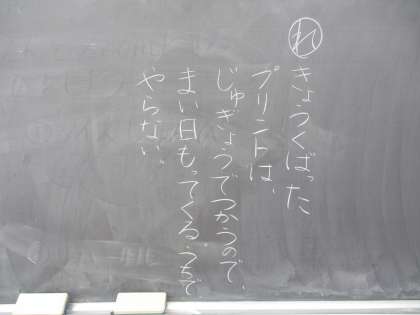 れ きょうくばった
プリントは、
じゅぎょうでつかうので、
まい日もってくる。うちで
やらない。